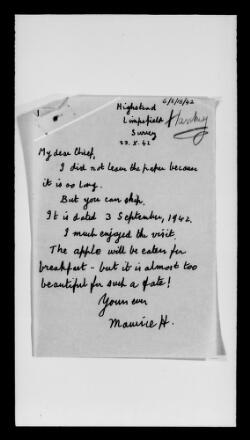 6/5/10/42
Highstead
Limpsfield
Surrey
Hankey
22.X.42
My dear Chief,
I did not leave the paper because
it is so long.
But you can skip.
It is dated 3 September, 1942.
I much enjoyed the visit.
The apple will be eaten for
breakfast - but it is almost too
beautiful for such a fate!
Yours ever
Maurice H.